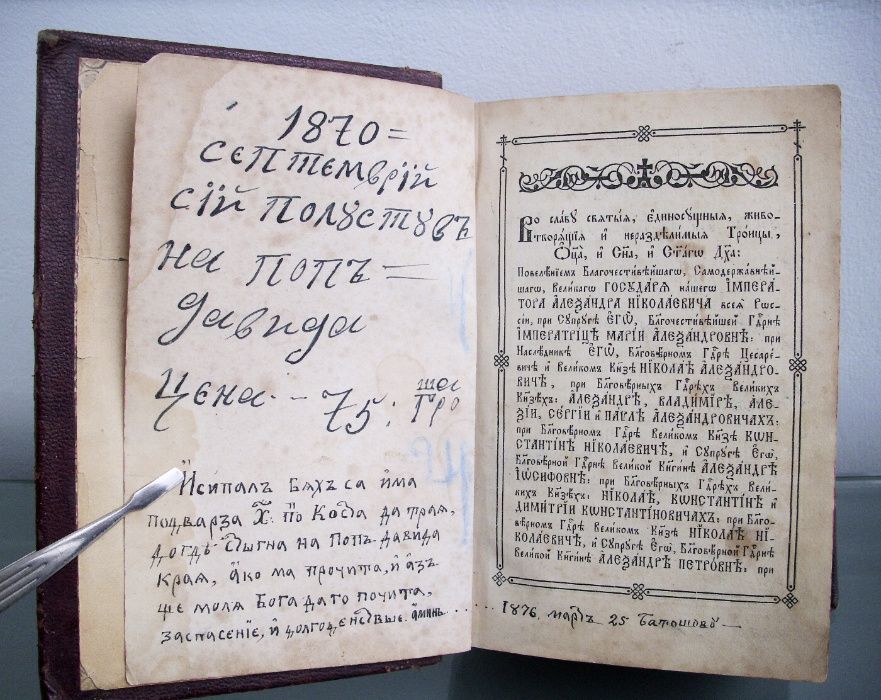 1870=
септемврїй
сїй полуставъ
на попъ=
давида
Цена. - 75: гро ша
Исипалъ бяхъ са и́ма
подварза Х. По Коста да трая,
догдѣ стигна на Попъ давида
края, а́ко ма прочита, и́ а́зъ
ще моля Бога даго почита,
заспасенїе, и́ долгоденствые. а́минь.....
Во сла́ву свѧты́ѧ, є҆диносꙋ́щныѧ, живо-
творѧ́щїѧ и҆ нераздѣ́лимыѧ Трⷪ҇цы,
Ѻ҆ц҃а̀, и҆ Сн҃а, и҆ Ст҃а́гѡ Дх҃а:
Повелѣ́нїемъ Благочести́вѣйшагѡ, Самодержа́внѣй-
шагѡ, Вели́кагѡ ГОСУДА́РѦ на́шегѡ І҆МПЕРА-
ТОРА А҆ЛЕѮА́НДРА НІКОЛА́ЕВИЧА всеѧ̀ Рѡс-
сі́и, при Сꙋпрꙋ́гѣ Є҆ГѠ̀, Бл҃гочести́вѣйшей Гдⷭ҇рнѣ
І҆МПЕРАТРИ́ЦѢ МАРІ́И А҆ЛЕѮА́НДРОВНѢ: при
Наслѣ́дникѣ Є҆ГѠ̀, Бл҃говѣ́рномъ Гдⷭ҇рѣ Цесаре́-
вичѣ и҆ Вели́комъ Кнѧ҃зѣ НІКОЛА́Ѣ А҆ЛЕѮА́НДРО-
ВИЧѢ, при Бл҃говѣ́рныхъ Гдⷭ҇рѣхъ Вели́кихъ
Кнѧ҃зѣхъ: А҆ЛЕѮА́НДРѢ, ВЛАДИ́МІРѢ, А҆ЛЕ-
ѮІ́И, СЕ́РГІИ и҆ ПА́ѴЛѢ А҆ЛЕѮА́НДРОВИЧАХЪ:
при Бл҃говѣ́рномъ Гдⷭ҇рѣ Вели́комъ Кнѧ҃зѣ КѠН-
СТАНТІ́НѢ НІКОЛА́ЕВИЧѢ, и҆ Сꙋпрꙋ́гѣ Є҆гѡ̀,
Бл҃говѣ́рной Гдⷭ҇рнѣ Вели́кой Кнѧги́нѣ А҆ЛЕѮА́НДРѢ
І҆Ѡ́СИФОВНѢ: при Бл҃говѣ́рныхъ Гдⷭ҇рѣхъ Вели́-
кихъ Кнѧ҃зѣхъ: НІКОЛА́Ѣ, КѠНСТАНТІ́НѢ и҆
ДИМИ́ТРІИ КѠНСТАНТІ́НОВИЧАХЪ: при Бл҃го-
вѣ́рномъ Гдⷭ҇рѣ Вели́комъ Кнѧ҃зѣ НІКОЛА́Ѣ НІ-
КОЛА́ЕВИЧѢ, и҆ Сꙋпрꙋ́гѣ Є҆гѡ̀, Бл҃говѣ́рной Гдⷭ҇рнѣ
Вели́кой Кнѧги́нѣ А҆ЛЕѮА́НДРѢ ПЕТРО́ВНѢ: при
1876. мартъ 25 Батошово